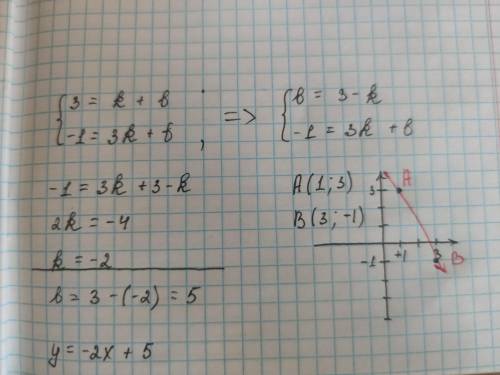 { 3 = k + b
-1 = 3k + b ; => { b = 3 - k
-1 = 3k + b
-1 = 3k + 3 - k
2k = -4
k = -2
b = 3 - (-2) = 5
y = -2x + 5
A (1; 3)
B (3; -1)
3 A
+1 3
-1 B